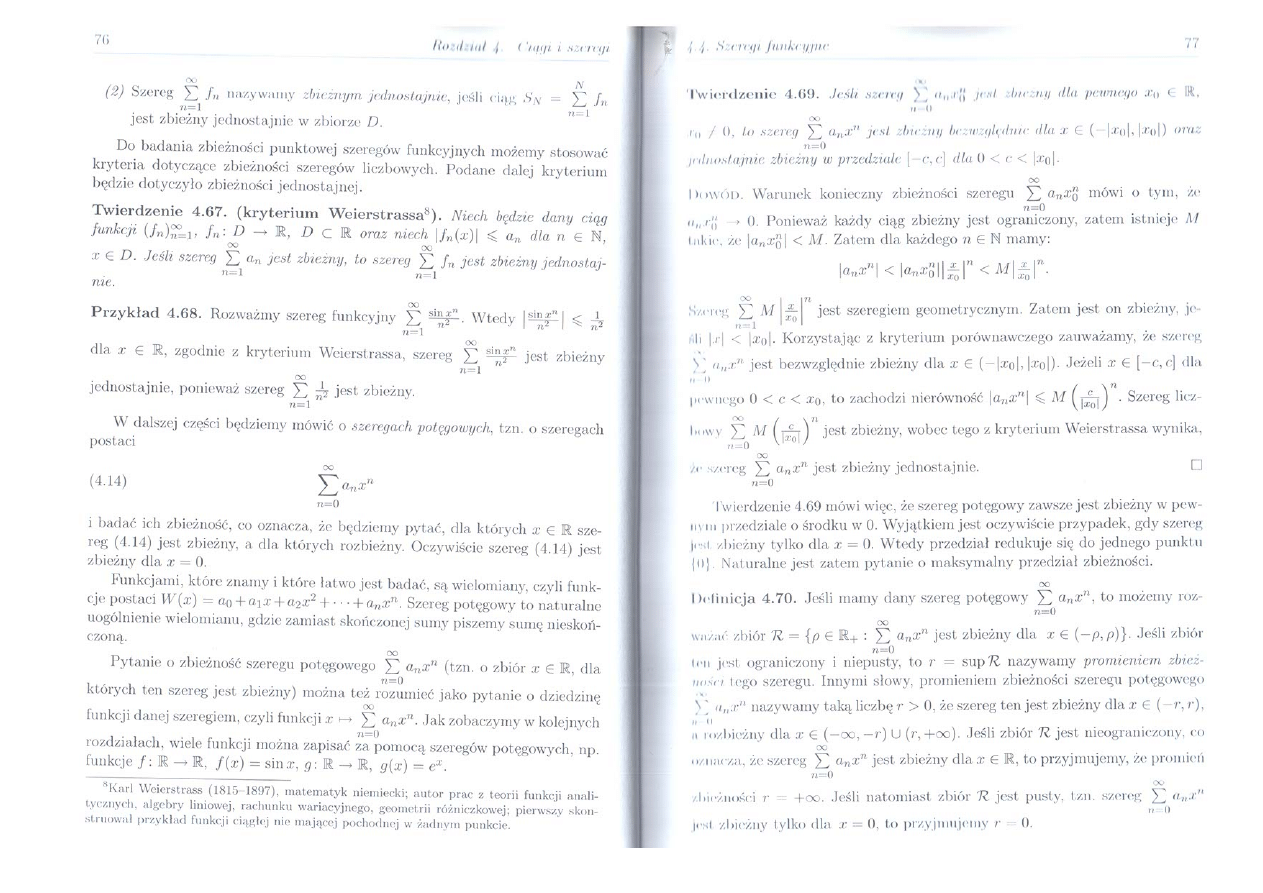 76
Rozdział 4. Ciągi i szeregi
(2) Szereg ∑_{n=1}^{∞} fₙ nazywamy zbieżnym jednostajnie, jeśli ciąg S_N = ∑_{n=1}^{N} fₙ
jest zbieżny jednostajnie w zbiorze D.
Do badania zbieżności punktowej szeregów funkcyjnych możemy stosować
kryteria dotyczące zbieżności szeregów liczbowych. Podane dalej kryterium
będzie dotyczyło zbieżności jednostajnej.
Twierdzenie 4.67. (kryterium Weierstrassa⁸). Niech będzie dany ciąg
funkcji (fₙ)_{n=1}^{∞}, fₙ: D → ℝ, D ⊂ ℝ oraz niech |fₙ(x)| ⩽ aₙ dla n ∈ ℕ,
x ∈ D. Jeśli szereg ∑_{n=1}^{∞} aₙ jest zbieżny, to szereg ∑_{n=1}^{∞} fₙ jest zbieżny jednostaj-
nie.
Przykład 4.68. Rozważmy szereg funkcyjny ∑_{n=1}^{∞} sin xⁿ/n². Wtedy |sin xⁿ/n²| ⩽ 1/n²
dla x ∈ ℝ, zgodnie z kryterium Weierstrassa, szereg ∑_{n=1}^{∞} sin xⁿ/n² jest zbieżny
jednostajnie, ponieważ szereg ∑_{n=1}^{∞} 1/n² jest zbieżny.
W dalszej części będziemy mówić o szeregach potęgowych, tzn. o szeregach
postaci
(4.14) ∑_{n=0}^{∞} aₙxⁿ
i badać ich zbieżność, co oznacza, że będziemy pytać, dla których x ∈ ℝ sze-
reg (4.14) jest zbieżny, a dla których rozbieżny. Oczywiście szereg (4.14) jest
zbieżny dla x = 0.
Funkcjami, które znamy i które łatwo jest badać, są wielomiany, czyli funk-
cje postaci W(x) = a₀ + a₁x + a₂x² + ··· + aₙxⁿ. Szereg potęgowy to naturalne
uogólnienie wielomianu, gdzie zamiast skończonej sumy piszemy sumę nieskoń-
czoną.
Pytanie o zbieżność szeregu potęgowego ∑_{n=0}^{∞} aₙxⁿ (tzn. o zbiór x ∈ ℝ, dla
których ten szereg jest zbieżny) można też rozumieć jako pytanie o dziedzinę
funkcji danej szeregiem, czyli funkcji x ↦ ∑_{n=0}^{∞} aₙxⁿ. Jak zobaczymy w kolejnych
rozdziałach, wiele funkcji można zapisać za pomocą szeregów potęgowych, np.
funkcje f: ℝ → ℝ, f(x) = sin x, g: ℝ → ℝ, g(x) = eˣ.
⁸Karl Weierstrass (1815–1897), matematyk niemiecki; autor prac z teorii funkcji anali-
tycznych, algebry liniowej, rachunku wariacyjnego, geometrii różniczkowej; pierwszy skon-
struował przykład funkcji ciągłej nie mającej pochodnej w żadnym punkcie.
4.4. Szeregi funkcyjne
77
Twierdzenie 4.69. Jeśli szereg ∑_{n=0}^{∞} aₙx₀ⁿ jest zbieżny dla pewnego x₀ ∈ ℝ,
x₀ ≠ 0, to szereg ∑_{n=0}^{∞} aₙxⁿ jest zbieżny bezwzględnie dla x ∈ (−|x₀|, |x₀|) oraz
jednostajnie zbieżny w przedziale [−c, c] dla 0 < c < |x₀|.
Dowód. Warunek konieczny zbieżności szeregu ∑_{n=0}^{∞} aₙx₀ⁿ mówi o tym, że
aₙx₀ⁿ → 0. Ponieważ każdy ciąg zbieżny jest ograniczony, zatem istnieje M
takie, że |aₙx₀ⁿ| < M. Zatem dla każdego n ∈ ℕ mamy:
|aₙxⁿ| < |aₙx₀ⁿ||x/x₀|ⁿ < M|x/x₀|ⁿ.
Szereg ∑_{n=1}^{∞} M|x/x₀|ⁿ jest szeregiem geometrycznym. Zatem jest on zbieżny, je-
śli |x| < |x₀|. Korzystając z kryterium porównawczego zauważamy, że szereg
∑_{n=0}^{∞} aₙxⁿ jest bezwzględnie zbieżny dla x ∈ (−|x₀|, |x₀|). Jeżeli x ∈ [−c, c] dla
pewnego 0 < c < x₀, to zachodzi nierówność |aₙxⁿ| ⩽ M(c/|x₀|)ⁿ. Szereg licz-
bowy ∑_{n=0}^{∞} M(c/|x₀|)ⁿ jest zbieżny, wobec tego z kryterium Weierstrassa wynika,
że szereg ∑_{n=0}^{∞} aₙxⁿ jest zbieżny jednostajnie. □
Twierdzenie 4.69 mówi więc, że szereg potęgowy zawsze jest zbieżny w pew-
nym przedziale o środku w 0. Wyjątkiem jest oczywiście przypadek, gdy szereg
jest zbieżny tylko dla x = 0. Wtedy przedział redukuje się do jednego punktu
{0}. Naturalne jest zatem pytanie o maksymalny przedział zbieżności.
Definicja 4.70. Jeśli mamy dany szereg potęgowy ∑_{n=0}^{∞} aₙxⁿ, to możemy roz-
ważać zbiór ℛ = {ρ ∈ ℝ₊ : ∑_{n=0}^{∞} aₙxⁿ jest zbieżny dla x ∈ (−ρ, ρ)}. Jeśli zbiór
ten jest ograniczony i niepusty, to r = sup ℛ nazywamy promieniem zbież-
ności tego szeregu. Innymi słowy, promieniem zbieżności szeregu potęgowego
∑_{n=0}^{∞} aₙxⁿ nazywamy taką liczbę r > 0, że szereg ten jest zbieżny dla x ∈ (−r, r),
a rozbieżny dla x ∈ (−∞, −r) ∪ (r, +∞). Jeśli zbiór ℛ jest nieograniczony, co
oznacza, że szereg ∑_{n=0}^{∞} aₙxⁿ jest zbieżny dla x ∈ ℝ, to przyjmujemy, że promień
zbieżności r = +∞. Jeśli natomiast zbiór ℛ jest pusty, tzn. szereg ∑_{n=0}^{∞} aₙxⁿ
jest zbieżny tylko dla x = 0, to przyjmujemy r = 0.